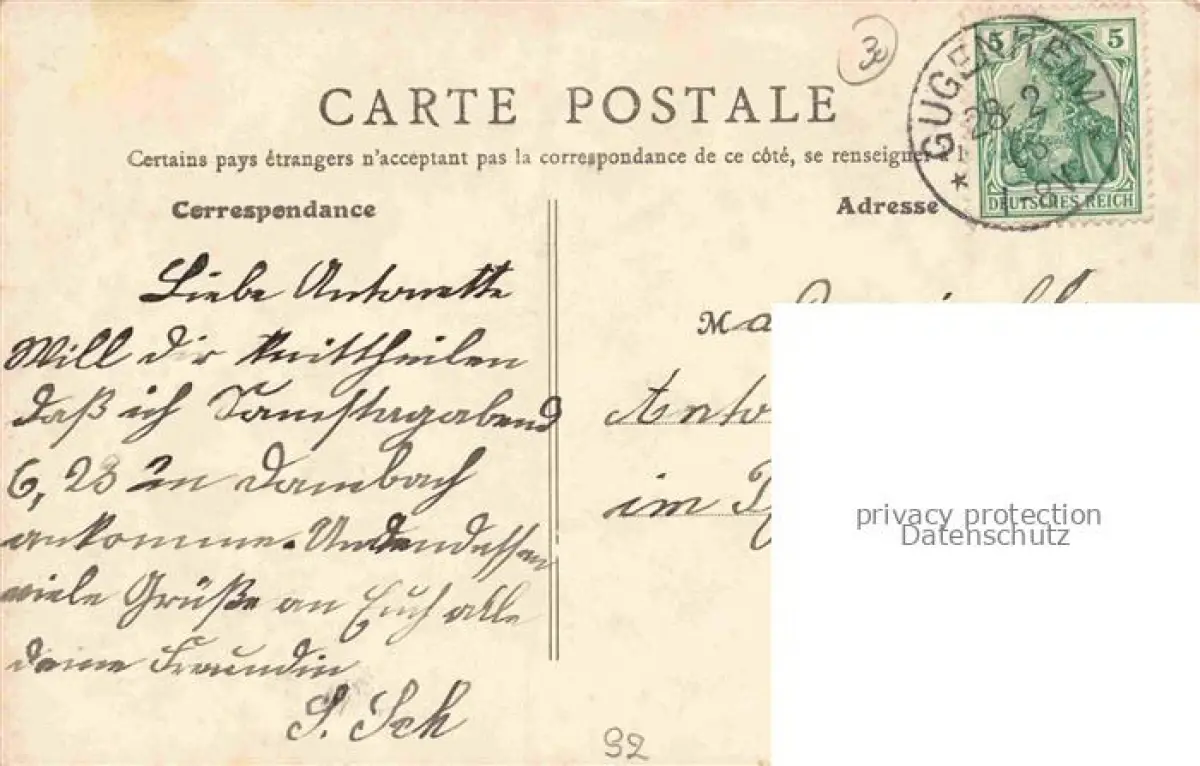 30
CARTE POSTALE
Certains pays étrangers n'acceptant pas la correspondance de ce côté, se renseigner à l
Correspondance
Adresse
5 5
DEUTSCHES REICH
GUGENHEIM
28 2
8V.
Liebe Antonette
Will dir mittheilen
daß ich Samstagabend
6,23 in Dambach
ankomme. Undendessen
viele Grüße an Euch alle
deine Freundin
S. Sch
M
Anto
im
privacy protection
Datenschutz
92